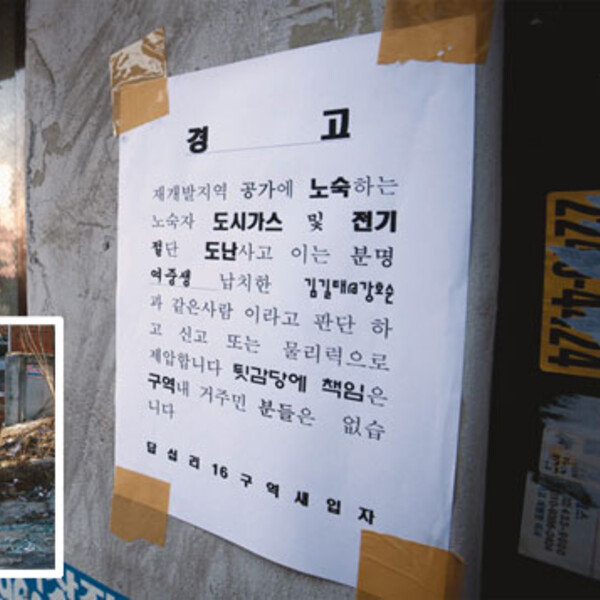 경 고
재개발지역 공가에 노숙하는
노숙자 도시가스 및 전기
절단 도난사고 이는 분명
여중생 납치한 김길태@강호순
과 같은사람 이라고 판단 하
고 신고 또는 물리력으로
제압합니다 뒷감당에 책임은
구역내 거주민 분들은 없습
니다
답십리16구역세입자